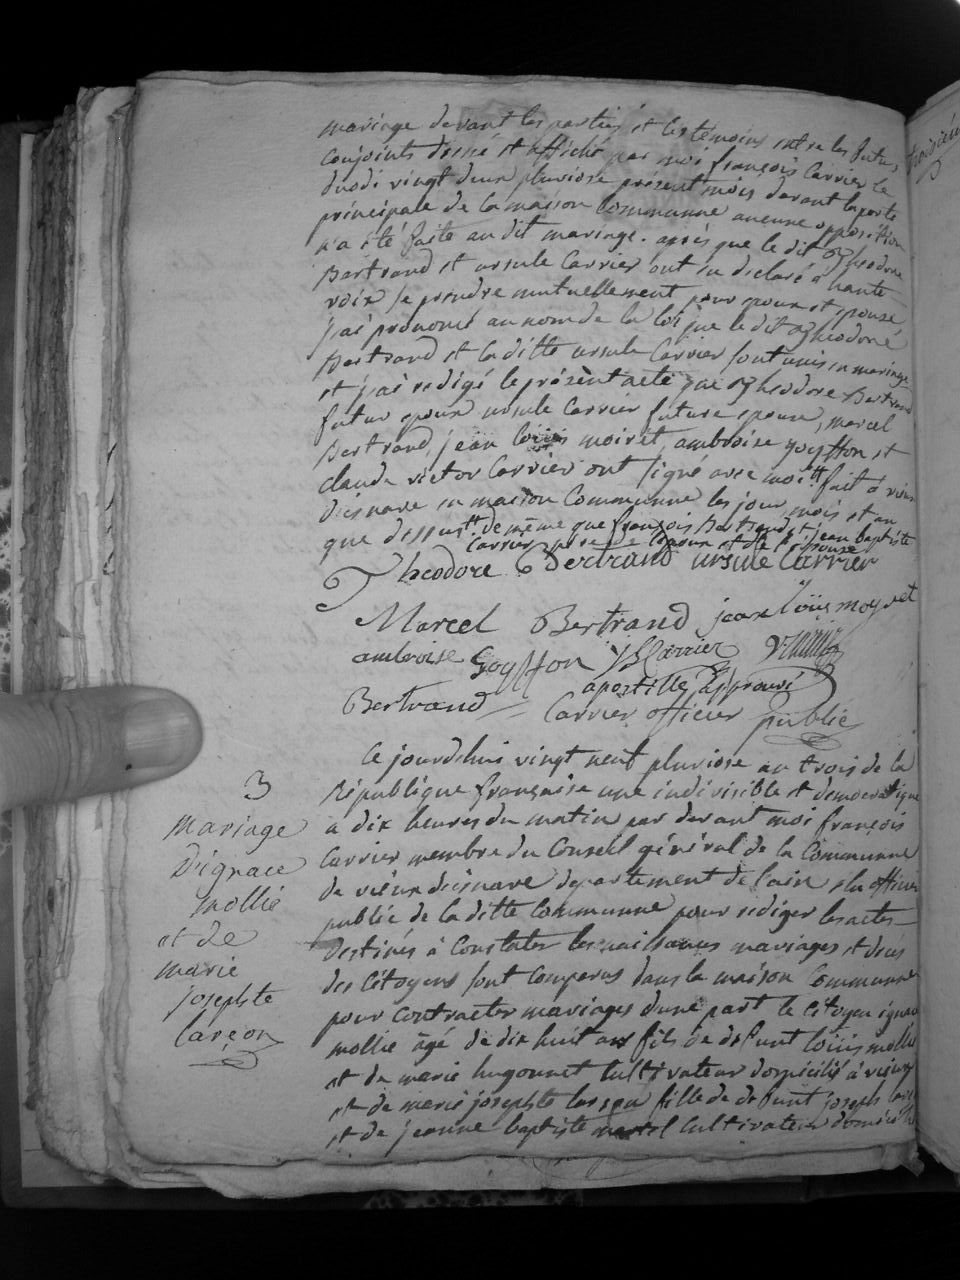 mariage devant les parties et les témoins entre les futurs
conjoints dressé et affiché par moi françois Carrier le
duodi vingt deux pluviose présent mois devant la porte
principale de la maison Communne aucunne opposition
n'a été faite au dit mariage. après que le dit Theodore
Bertrand et ursule Carrier ont eu declaré a haute
voix se prendre mutuellement pour epoux et epouse
j'ai prononcé au nom de la loi que le dit Theodore
Bertrand et la ditte ursule Carrier sont unis en mariage
et j'ai redigé le présent acte que Theodore Bertrand
futur epoux ursule Carrier future epouse, marcel
Bertrand, jean loüis moiret, ambroise goyffon et
claude victor Carrier ont signé avec moi tt fait à vieux
disenave en maison Communne les jour, mois et an
que dessus tt de même que françois Bertrand et jean baptiste
Carrier pere de l'epoux et de l'epouse
Theodore Bertrand ursule Carrier
Marcel Bertrand jean loüis moyret
ambroise Goyffon JB Carrier
apostille approuvé
Bertrand Carrier officier public
troisième
3
mariage
d'ignace
mollie
et de
marie
josephte
larçon
Ce jourdhui vingt neuf pluviose an trois de la
République française une indivisible et democratique
a dix heures du matin par devant moi françois
Carrier membre du Conseil général de la Communne
de vieux disenave departement de l'ain elu officier
public de la ditte Communne pour rediger les actes
destinés à Constater les naissances mariages et deces
des Citoyens sont Comparus dans la maison Communne
pour Contracter mariages dune part le citoyen ignace
mollie âgé de dix huit ans fils de defunt loüis mollie
et de marie hugonnet Cultivateur domicilié à vieux
et de marie josephte larson fille de defunt joseph
et de jeanne baptiste martel Cultivateur domicilié